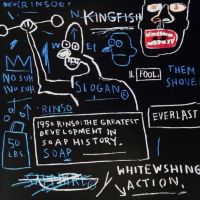 KINGFISH
NO SUH
NO SUH
SLOGAN ©
FOOL.
THEM
SHOVE
RINSO
1950 RINSO: THE GREATEST
DEVELOPMENT IN
SOAP HISTORY.
SOAP
EVERLAST
50
LBS.
WHITEWSHING
ACTION.